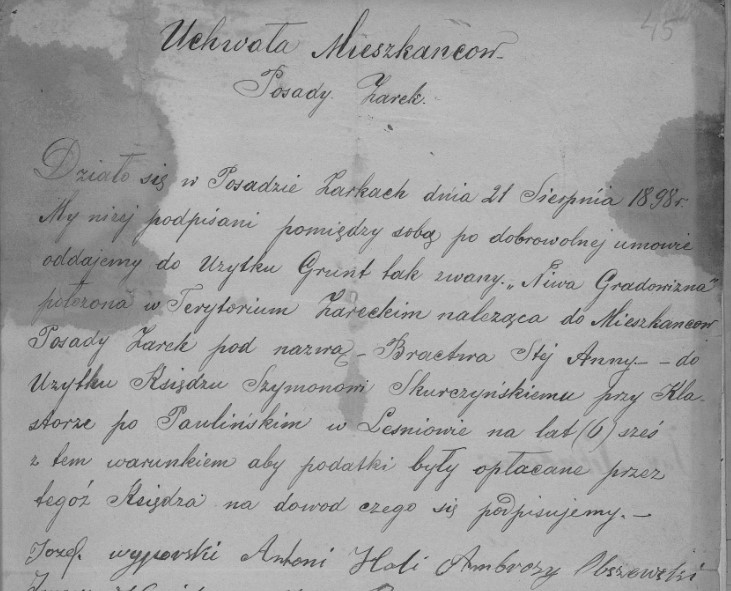 45
Uchwała Mieszkancow
Posady Zarek.
Działo się w Posadzie Zarkach dnia 21 Sierpnia 1898 r.
My niżej podpisani pomiędzy sobą po dobrowolnej umowie
oddajemy do Uzytku Grunt tak zwany „Niwa Gradowizna"
położona w Terytorium Zareckim nalezząca do Mieszkancow
Posady Zarek pod nazwą – Bractwa Stej Anny – – do
Uzytku Księdzu Szymonowi Skurczyńskiemu przy Kla-
storze po Paulińskim w Lesniowie na lat (6) sześ
z tem warunkiem aby podatki były opłacane przez
tegoż Księdza na dowod czego się podpisujemy. –
Jozef Antoni Ambrozy